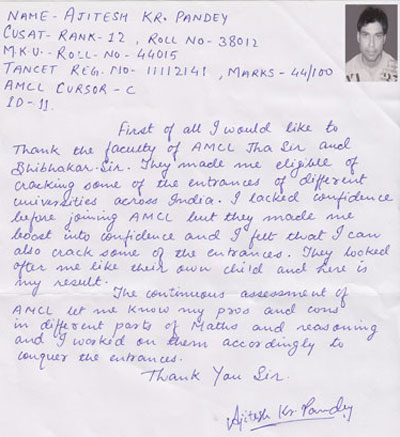 NAME- AJITESH KR. PANDEY
CUSAT- RANK-12, ROLL NO- 38012
M.K.U.- ROLL-NO- 44015
TANCET REG. NO- 11112141, MARKS-44/100
AMCL CURSOR-C
ID-11.
First of all I would like to
Thank the faculty of AMCL Jha Sir and
Bhibhakar Sir. They made me eligible of
cracking some of the entrances of different
universities across India. I lacked confidence
before joining AMCL but they made me
boost into confidence and I felt that I can
also crack some of the entrances. They looked
after me like their own child and here is
my result.
The continuous assessment of
AMCL let me know my pros and cons
in different parts of Maths and reasoning
and I worked on them accordingly to
conquer the entrances.
Thank You Sir.
Ajitesh Kr. Pandey